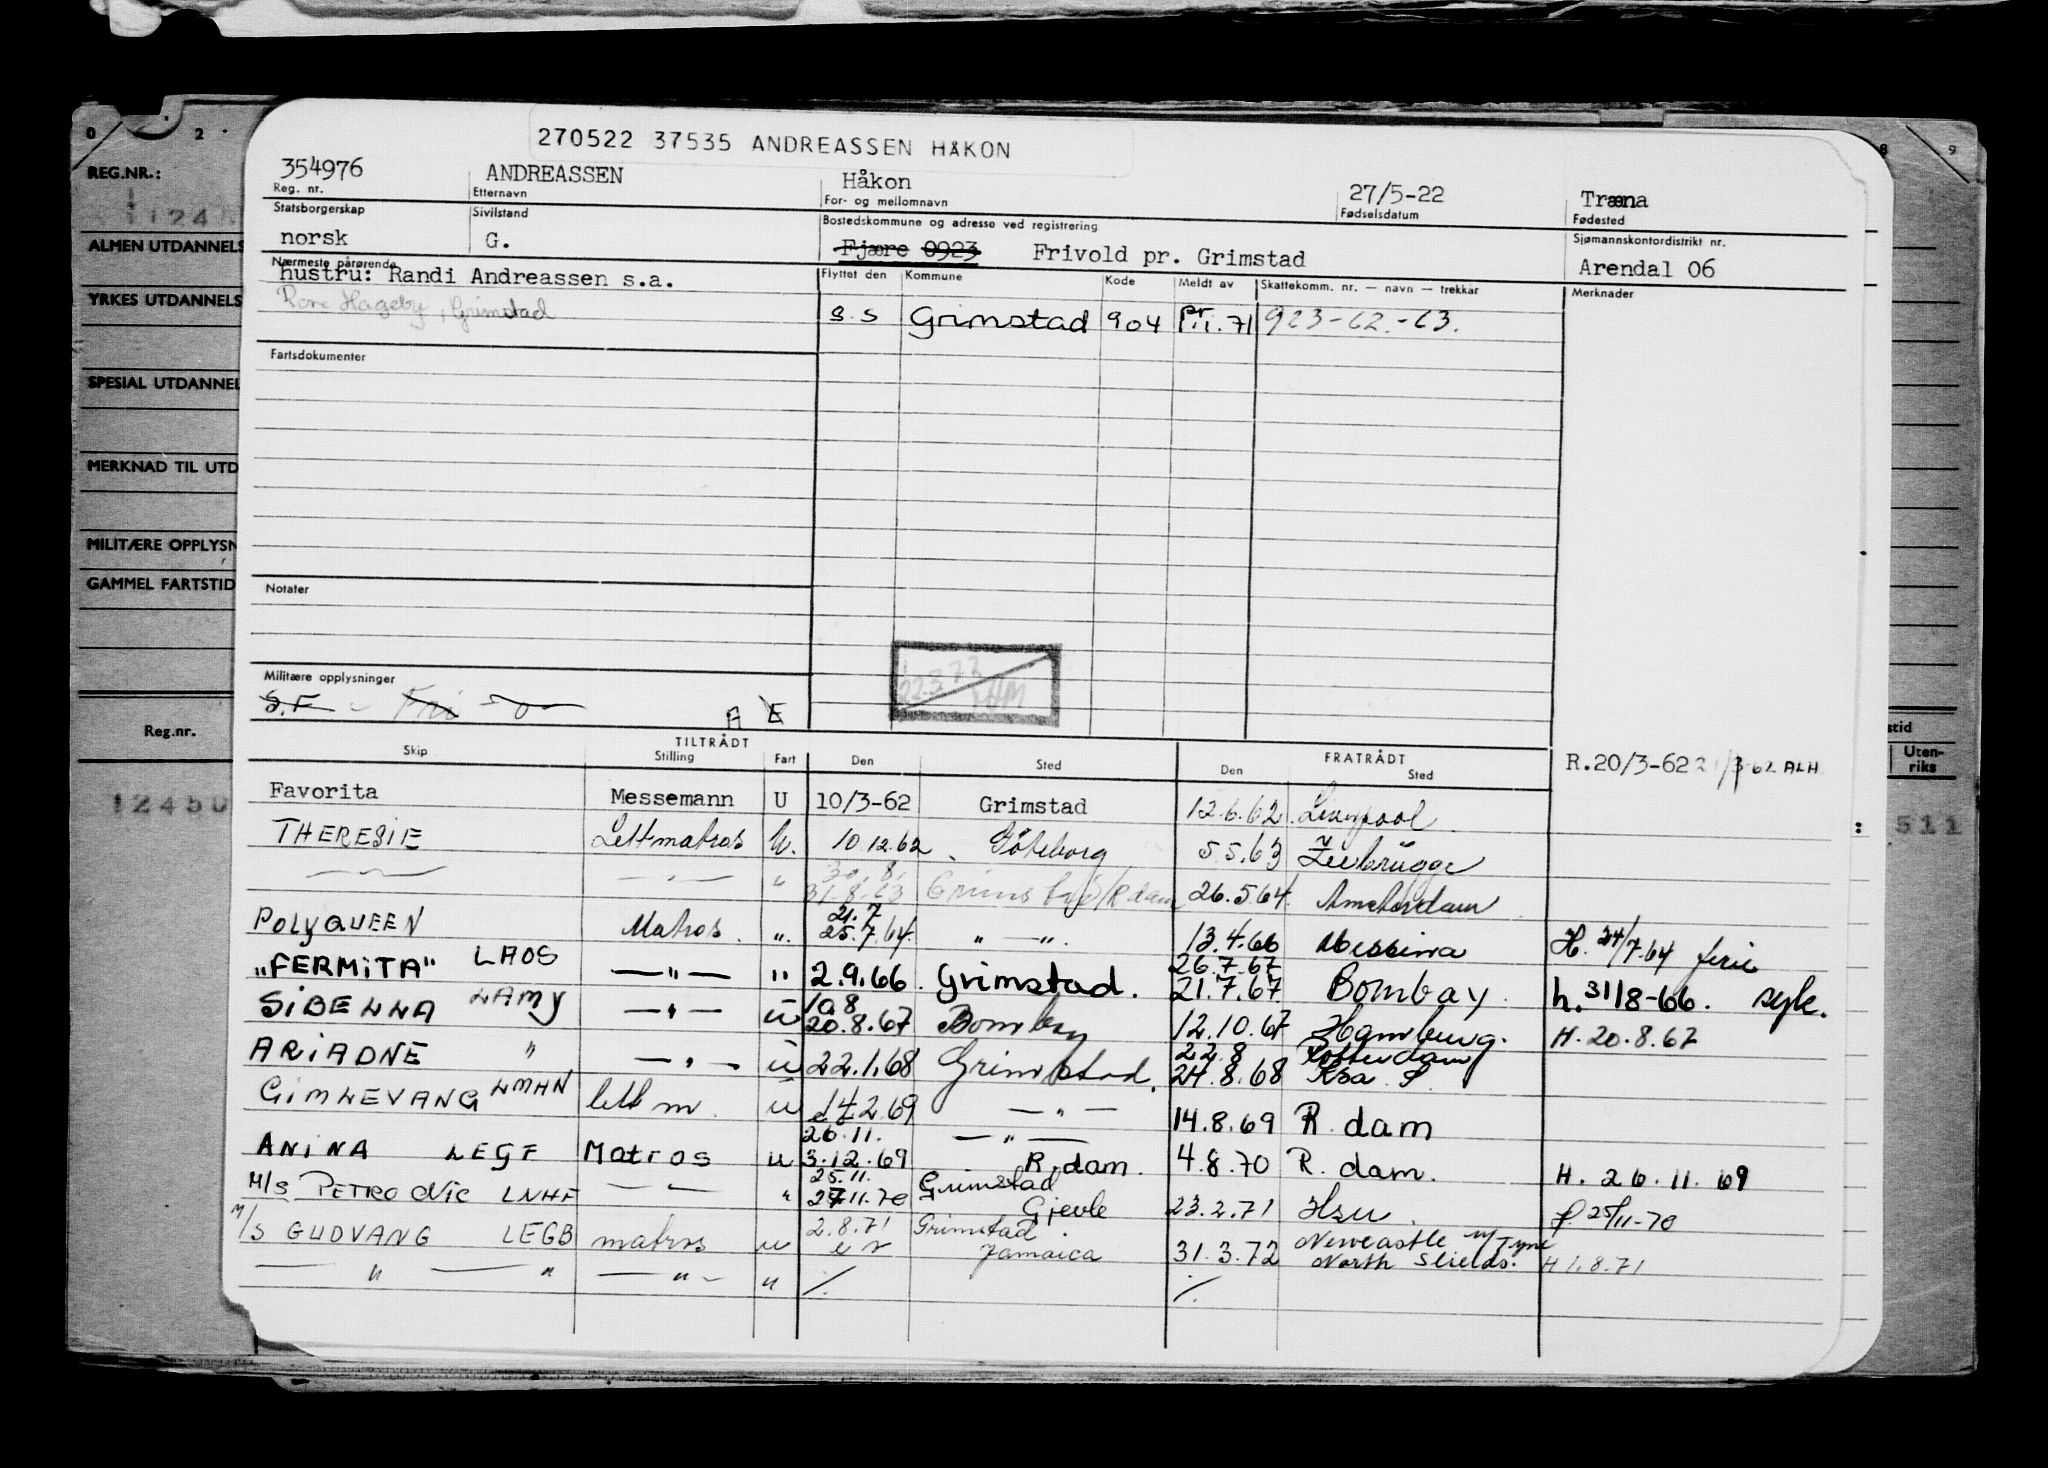 270522 37535 ANDREASSEN HÅKON
354976 ANDREASSEN Håkon 27/5-22 Træna
Reg. nr. Etternavn For- og mellomnavn Fødselsdatum Fødested
Statsborgerskap Sivilstand Bostedskommune og adresse ved registrering Sjømannskontordistrikt nr.
norsk G. Fjære 0923 Frivold pr. Grimstad Arendal 06
Nærmeste pårørende Flyttet den Kommune Kode Meldt av Skattekomm. nr. — navn — trekkår Merknader
hustru: Randi Andreassen s.a.
Rore Hageby, Grimstad
S.S Grimstad 904 pr. 1.1.71 923-62.-63.
Fartsdokumenter
Notater
Militære opplysninger
S.F. Fri
A E
22.3.72
TILTRÅDT FRATRÅDT
Skip Stilling Fart Den Sted Den Sted
R.20/3-62 ALH
Favorita Messemann U 10/3-62 Grimstad 12.6.62 Liverpool
THERESIE Lettmatros U. 10.12.62 Göteborg 5.5.63 Zeebrügge
— " — — " — " 30.8. 31.8.63 Grimstad/R.dam 26.5.64. Amsterdam
POLYQUEEN Matros ". 21.7 25.7.64. " — ". 13.4.66 Messina H. 24/7.64 ferie
"FERMITA" LAOS — " — " 2.9.66. Grimstad. 26.7.67 21.7.67 Bombay. h. 31/8-66. syk.
SIBELLA LAMY — " — u 19.8 20.8.67 Bombay 12.10.67 Hamburg. H. 20.8.67
ARIADNE " — " — u 22.1.68 Grimstad. 22.8 24.8.68 Rotterdam Krs. S.
GIMLEVANG LMHN lett m. u 14.2.69 — " — 14.8.69 R. dam
ANINA LEGF Matros u 26.11. 3.12.69 — " — R.dam. 4.8.70 R. dam. H. 26.11.69
M/S PETRO NIC LNHF — " — " 25.11. 27.11.70 Grimstad Gjevle 23.2.71 25/11-70
M/S GUDVANG LEGB matros u 2.8.71 Grimstad. Jamaica 31.3.72 Newcastle u/Tyne North Shields. H 1.8.71
— " — " — " — " ⁒ ⁒
0 2 8 9
REG.NR.:
ALMEN UTDANNELS
YRKES UTDANNELS
SPESIAL UTDANNEL
MERKNAD TIL UTD
MILITÆRE OPPLYSN
GAMMEL FARTSTID
Reg.nr. stid
Uten-
riks
12450 511